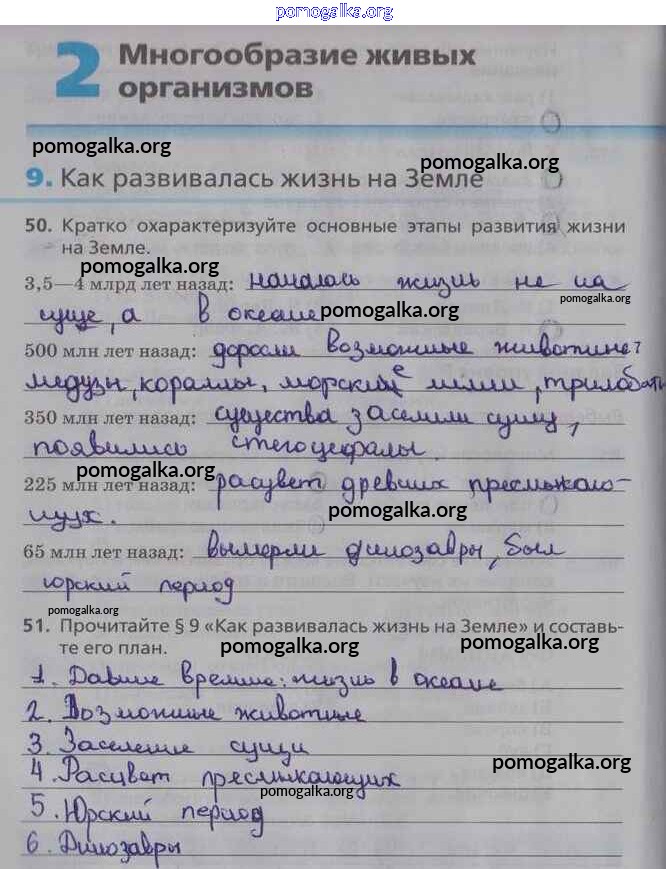 pomogalka.org
2 Многообразие живых
организмов
pomogalka.org
pomogalka.org
9. Как развивалась жизнь на Земле
50. Кратко охарактеризуйте основные этапы развития жизни
на Земле.
pomogalka.org
3,5—4 млрд лет назад: началась жизнь не на
pomogalka.org
суще, а в океане
pomogalka.org
500 млн лет назад: возможные животные:
медузы, кораллы, морские лилии, трилобиты
350 млн лет назад: существа заселили сушу,
появились стегоцефалы.
pomogalka.org
225 млн лет назад: расцвет древних пресмыкаю-
щих.
pomogalka.org
65 млн лет назад: вымерли динозавры, был
юрский период
pomogalka.org
51. Прочитайте § 9 «Как развивалась жизнь на Земле» и составь-
те его план.
pomogalka.org
pomogalka.org
1. Давние времена: жизнь в океане
2. Возможные животные
3. Заселение суши
pomogalka.org
4. Расцвет пресмыкающих
pomogalka.org
5. Юрский период
6. Динозавры